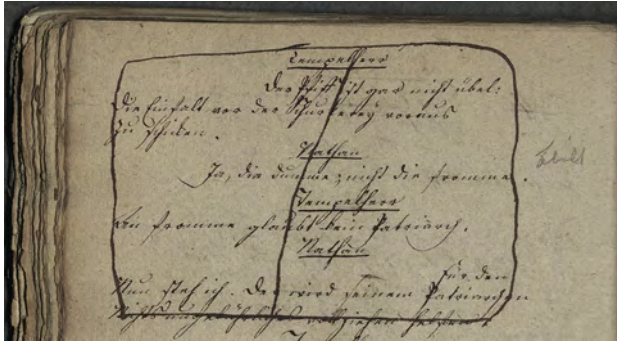 Tempelherr
Der Pfiff ist gar nicht übel:
Die Einfalt vor der Schurkerey voraus
zu schicken.
Nathan
Ja, die dumme; nicht die fromme.
Tempelherr
An fromme glaubt kein Patriarch.
Nathan
Für den
Nun steh ich. Der wird seinem Patriarchen
Nichts ungebührliches vollziehen helfen.